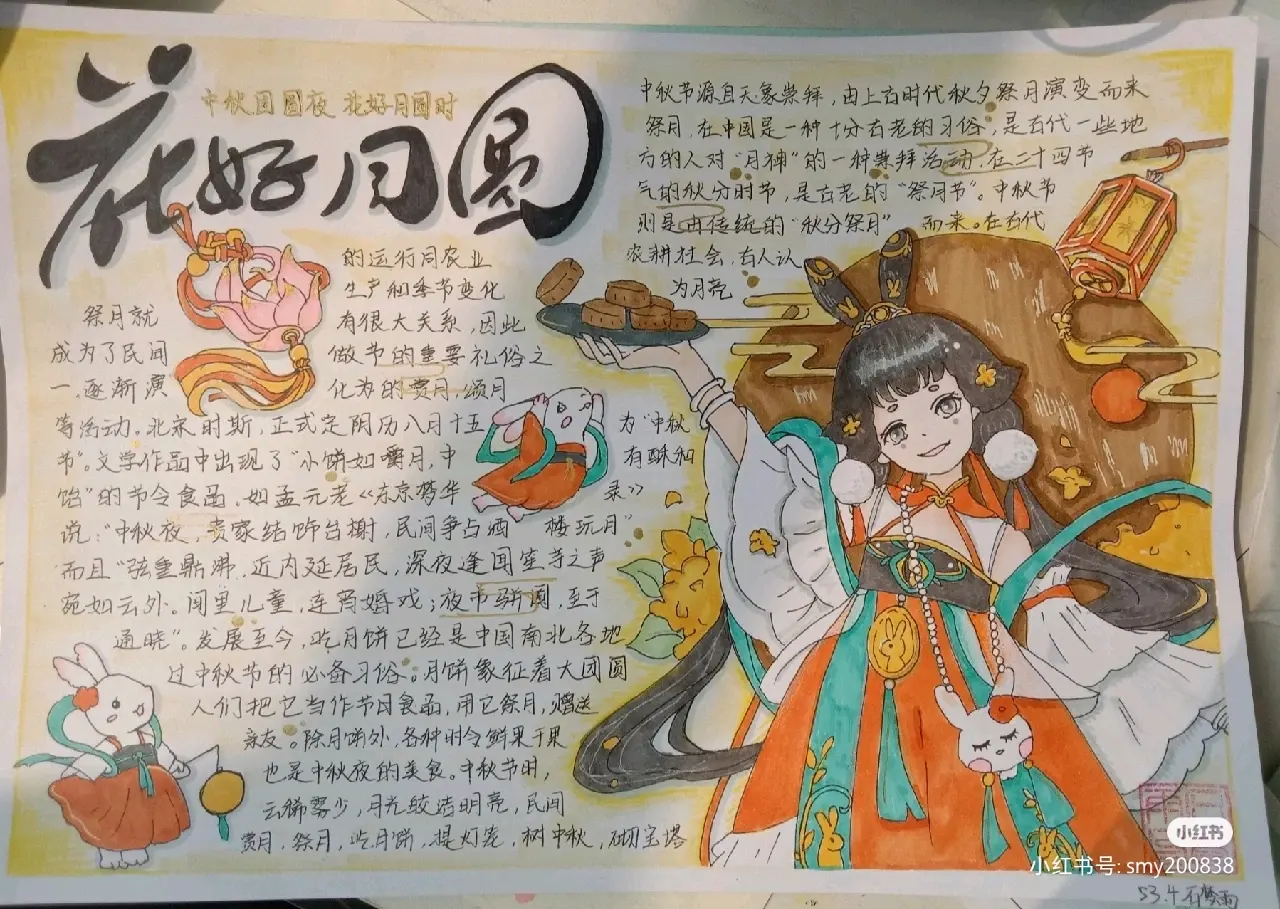 花好月圆
中秋团圆夜 花好月圆时
中秋节源自天象崇拜，由上古时代秋夕祭月演变而来
祭月，在中国是一种十分古老的习俗，是古代一些地
方的人对“月神”的一种崇拜活动，在二十四节
气的秋分时节，是古老的“祭月节”。中秋节
则是由传统的“秋分祭月” 而来。在古代
农耕社会，古人认
为月亮
的运行同农业
生产和季节变化
有很大关系，因此
祭月就
做节的重要礼俗之
成为了民间
一，逐渐演
化为的赏月，颂月
等活动。北宋时斯，正式定阴历八月十五 为“中秋
节”。文学作品中出现了“小饼如嚼月，中 有酥和
饴”的节令食品，如孟元老《东京梦华 录》
说：“中秋夜，贵家结饰台榭，民间争占酒 楼玩月”
而且“弦重鼎沸，近内延居民，深夜逢闻笙芋之声
宛如云外。间里儿童，连宵婚戏；夜市骈阗，至于
通晓”。发展至今，吃月饼已经是中国南北各地
过中秋节的必备习俗。月饼象征着大团圆
人们把它当作节日食品，用它祭月，赠送
亲友。除月饼外，各种时令鲜果干果
也是中秋夜的美食。中秋节时，
云稀雾少，月光皎洁明亮，民间
赏月，祭月，吃月饼，提灯笼，树中秋，砌宝塔
小红书
小红书号: smy200838
53.4